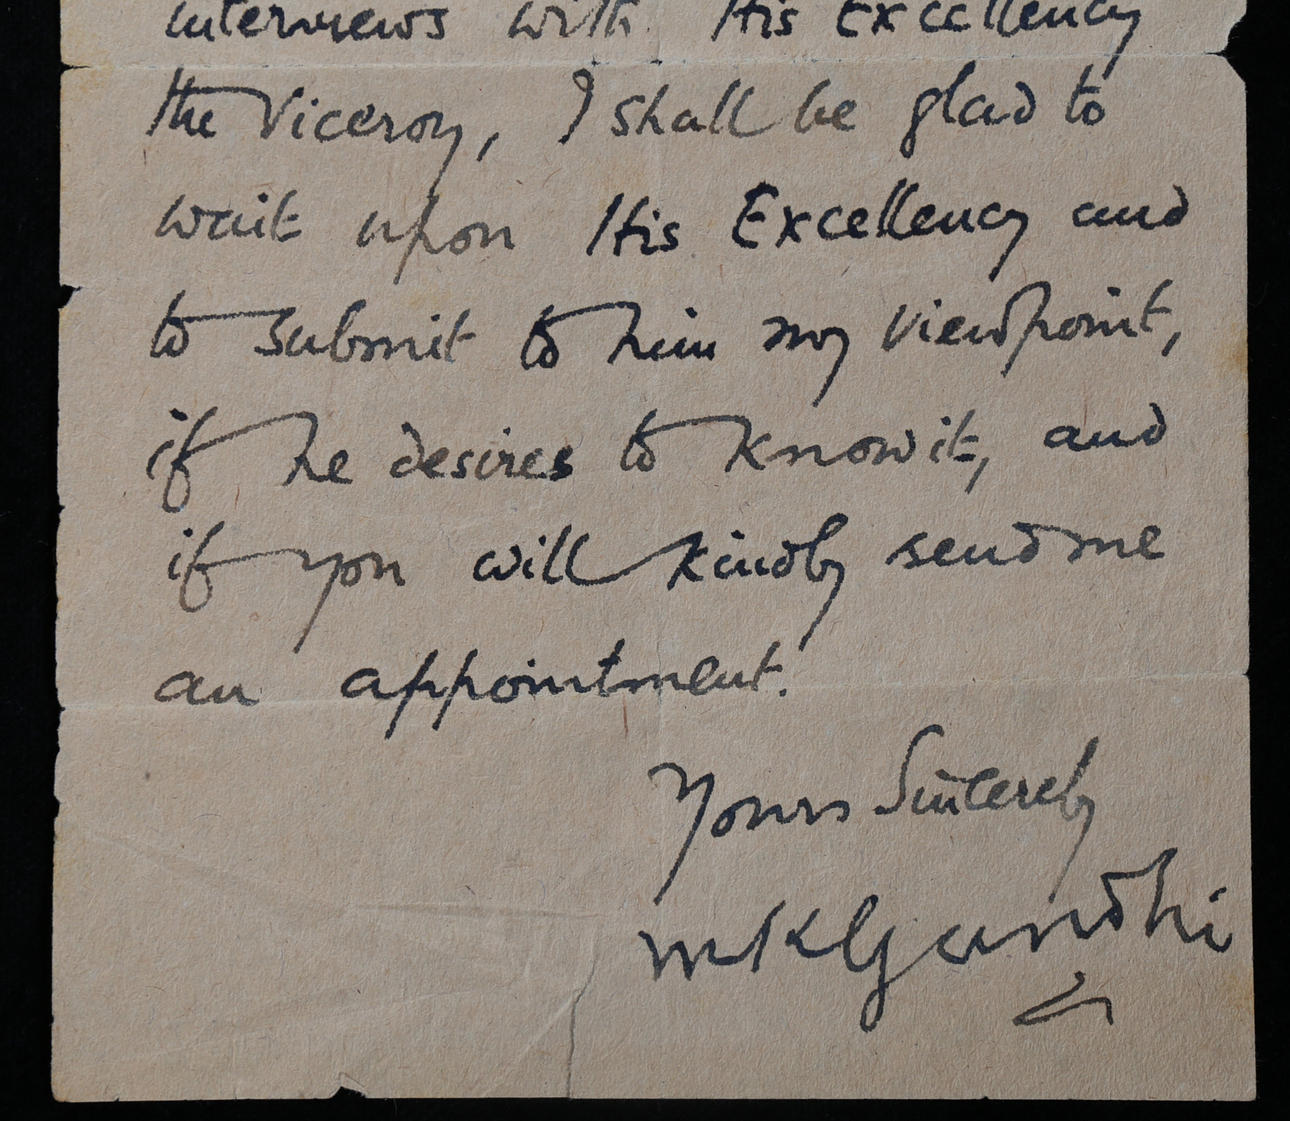 interviews with His Excellency
the Viceroy, I shall be glad to
wait upon His Excellency and
to submit to him my viewpoint,
if he desires to know it, and
if you will kindly send me
an appointment.
Yours Sincerely
MKGandhi